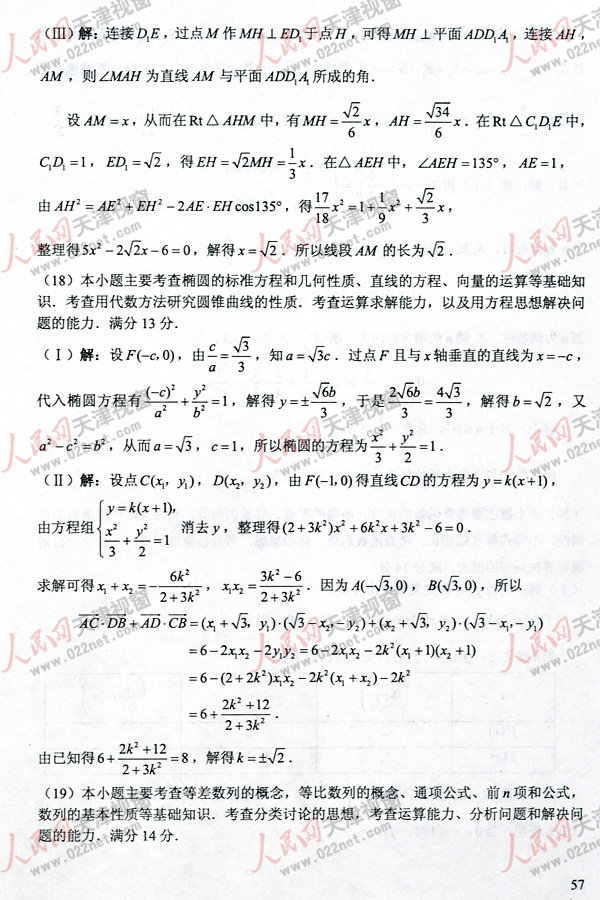 (Ⅲ)解:连接D₁E,过点M作MH⊥ED₁于点H,可得MH⊥平面ADD₁A₁,连接AH,
AM,则∠MAH为直线AM与平面ADD₁A₁所成的角.
设AM=x,从而在Rt△AHM中,有MH=√2/6 x,AH=√34/6 x.在Rt△C₁D₁E中,
C₁D₁=1,ED₁=√2,得EH=√2MH=1/3 x.在△AEH中,∠AEH=135°,AE=1,
由AH²=AE²+EH²-2AE·EHcos135°,得17/18 x²=1+1/9 x²+√2/3 x,
整理得5x²-2√2x-6=0,解得x=√2.所以线段AM的长为√2.
(18)本小题主要考查椭圆的标准方程和几何性质、直线的方程、向量的运算等基础知
识.考查用代数方法研究圆锥曲线的性质.考查运算求解能力,以及用方程思想解决问
题的能力.满分13分.
(Ⅰ)解:设F(-c,0),由c/a=√3/3,知a=√3c.过点F且与x轴垂直的直线为x=-c,
代入椭圆方程有(-c)²/a²+y²/b²=1,解得y=±√6b/3,于是2√6b/3=4√3/3,解得b=√2,又
a²-c²=b²,从而a=√3,c=1,所以椭圆的方程为x²/3+y²/2=1.
(Ⅱ)解:设点C(x₁,y₁),D(x₂,y₂),由F(-1,0)得直线CD的方程为y=k(x+1),
由方程组{y=k(x+1), x²/3+y²/2=1 消去y,整理得(2+3k²)x²+6k²x+3k²-6=0.
求解可得x₁+x₂=-6k²/(2+3k²),x₁x₂=(3k²-6)/(2+3k²).因为A(-√3,0),B(√3,0),所以
AC·DB+AD·CB=(x₁+√3,y₁)·(√3-x₂,-y₂)+(x₂+√3,y₂)·(√3-x₁,-y₁)
=6-2x₁x₂-2y₁y₂=6-2x₁x₂-2k²(x₁+1)(x₂+1)
=6-(2+2k²)x₁x₂-2k²(x₁+x₂)-2k²
=6+(2k²+12)/(2+3k²).
由已知得6+(2k²+12)/(2+3k²)=8,解得k=±√2.
(19)本小题主要考查等差数列的概念,等比数列的概念、通项公式、前n项和公式,
数列的基本性质等基础知识.考查分类讨论的思想,考查运算能力、分析问题和解决问
题的能力.满分14分.
57
人民网 天津视窗
www.022net.com